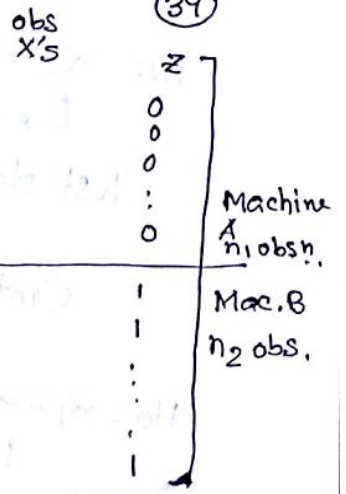 39
obs
X's
Z
0
0
0
:
0
Machine
A
n₁ obsn.
1
1
:
1
Mac. B
n₂ obs.